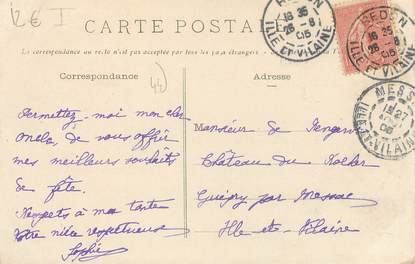 12€ I
CARTE POSTALE
La correspondance au recto n'est pas acceptée par tous les pays étrangers
Correspondance
Adresse
(44)
REDON
16 35
26 - 8
06
ILLE ET VILAINE
REDON
16 35
26 - 8
06
ILLE ET VILAINE
MESS
ILLE-ET-VILAINE
Permettez-moi mon cher
Oncle, de vous offrir
mes meilleurs souhaits
de fête.
Respects à ma tante
Votre nièce respectueuse
Sophie
Monsieur de
Château du Rocher
Guipry par Messac
Ille-et-Vilaine